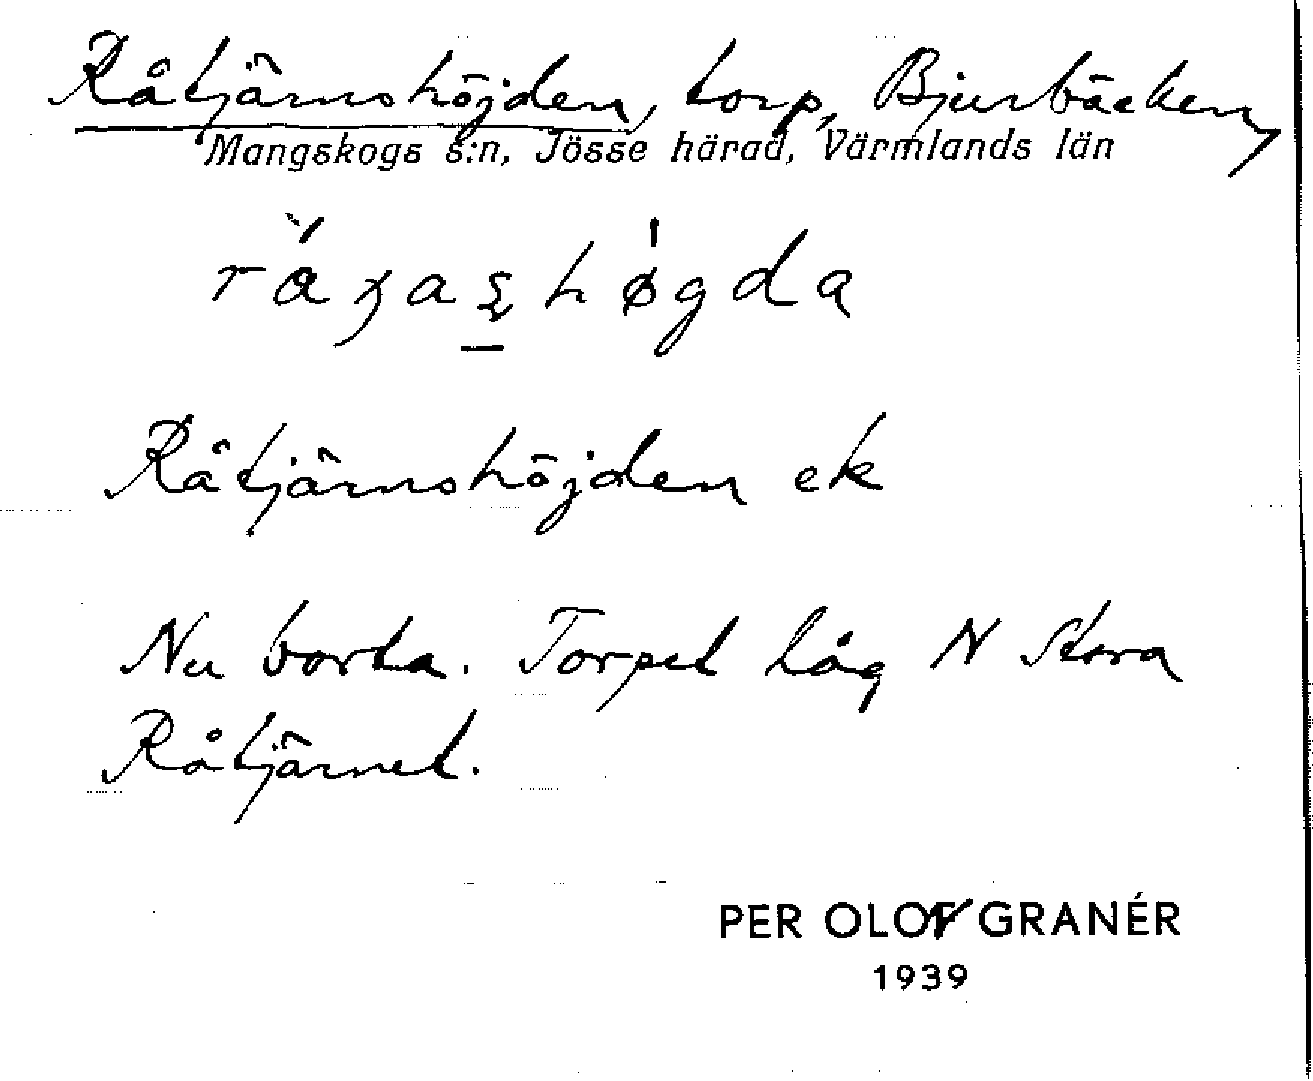 Råtjärnshöjden, torp, Bjurbäcken,
Mangskogs s:n, Jösse härad, Värmlands län
Råtjärnshöjden ek
Nu borta. Torpet låg N Stora
Råtjärnet.
PER OLOF GRANÉR
1939